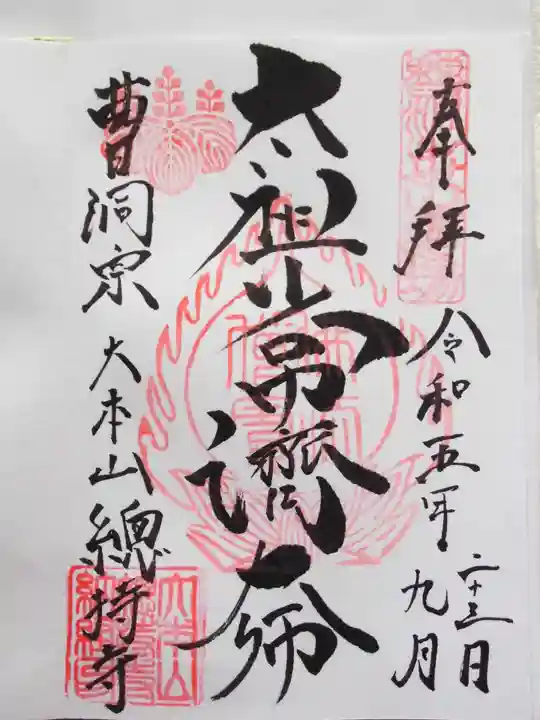 奉拝
令和五年
九月
二十三日
太祖常済大師
曹洞宗
大本山總持寺